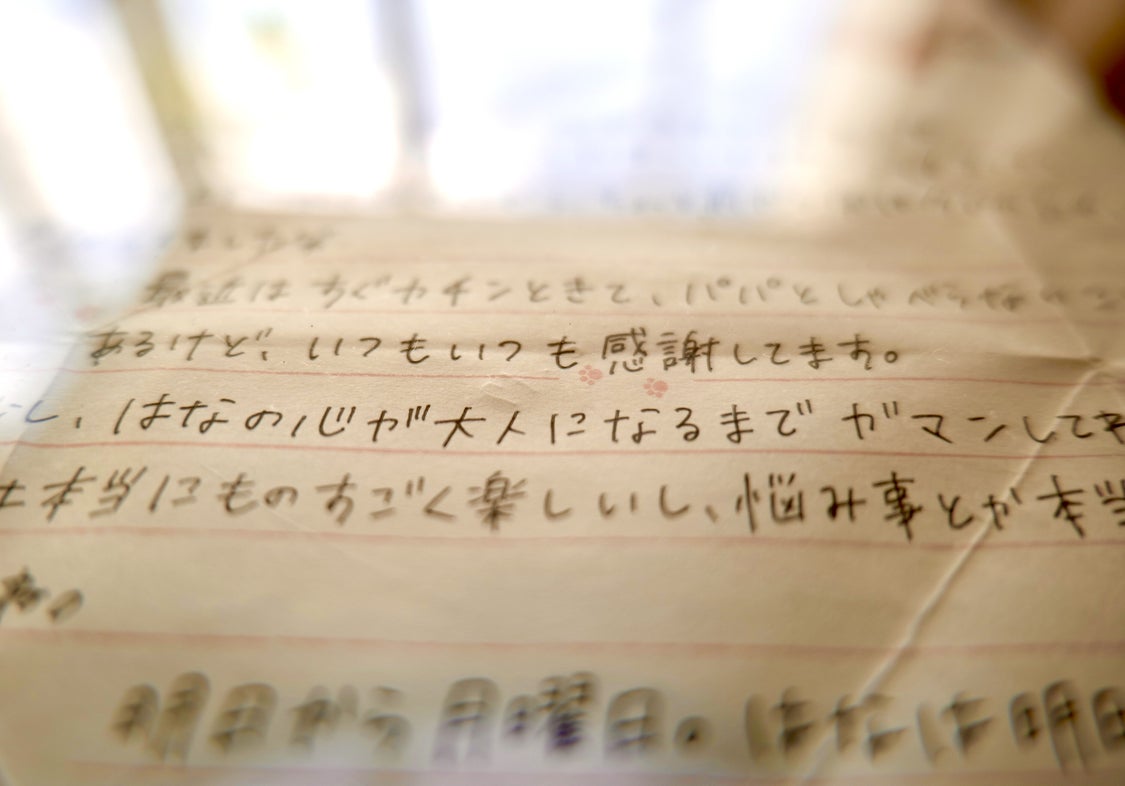 最近はすぐカチンときて、パパとしゃべらない
あるけど、いつもいつも感謝してます。
し、はなの心が大人になるまでガマンして
本当にものすごく楽しいし、悩み事とか本当
明日から月曜日。はなは明日